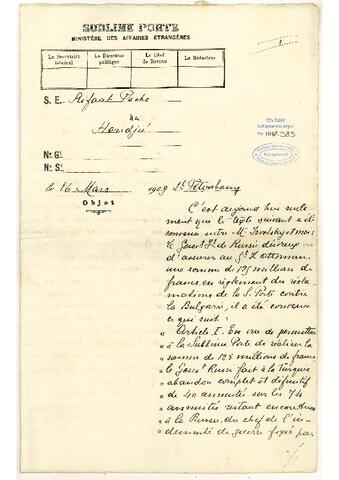 SUBLIME PORTE
MINISTÈRE DES AFFAIRES ÉTRANGÈRES
Le Secrétaire Général
Le Directeur politique
Le Chef de Bureau
Le Rédacteur
S. E. Rifaat Pacha
à
N° G!
N° S!
le 16 Mars 1909 St Pétersbourg
Objet
C'est aujourd'hui seule-
ment que le texte suivant a été
convenu entre Mr Isvolsky et moi:
le Gouvt Il. de Russie désireux
d'assurer au Gt Il. ottoman
une somme de 125 millions de
francs, en règlement des récla-
mations de la S. Porte contre
la Bulgarie, il a été convenu
ce qui suit:
" Article I. En vue de permettre
" à la Sublime Porte de réaliser la
" somme de 125 millions de francs
" le Gouvt Russe fait à la Turquie
" abandon complet et définitif
" de 40 annuités sur les 74
" annuités restant encore dues
" à la Russie, du chef de l'in-
" demnité de guerre fixée par